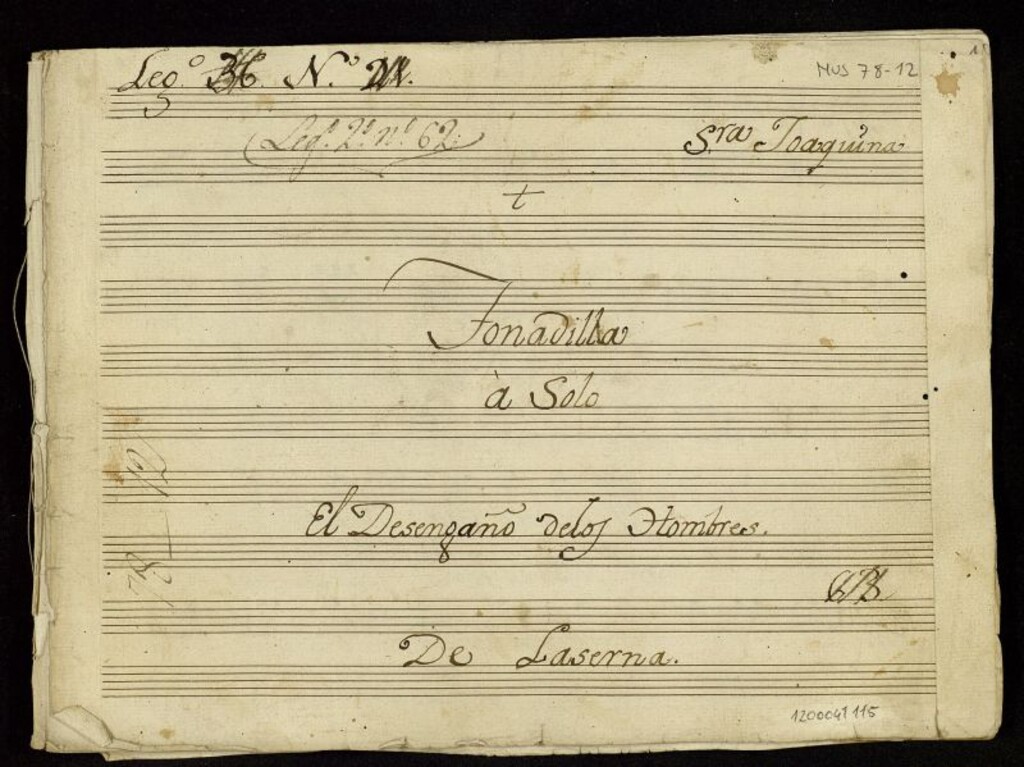 Leg.º N.º
MUS 78-12
Leg.º 2.º n.º 62.
S.ra Joaquina
t
Tonadilla
à Solo
El Desengaño delos Hombres.
De Laserna.
1200041115